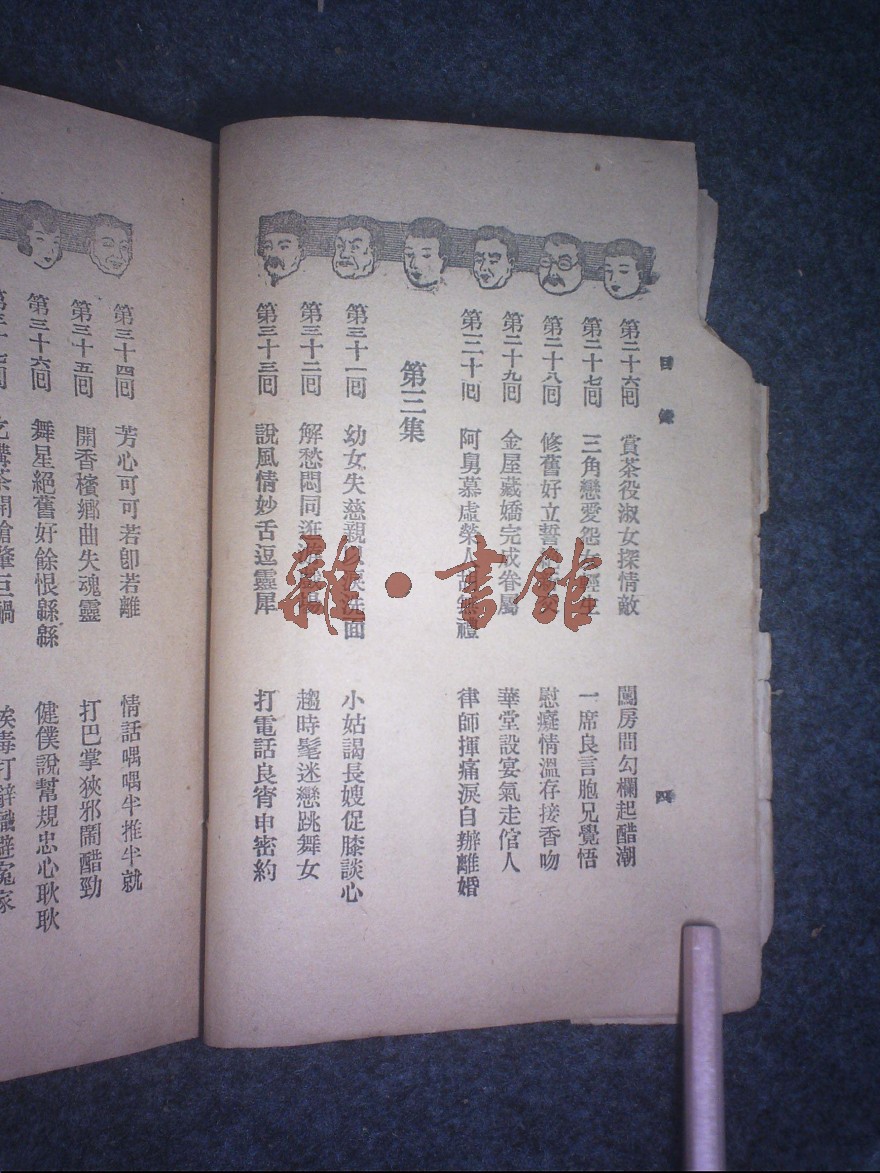 目錄
四
第二十六囘 賞茶役淑女探情敵 闖房間勾欄起醋潮
第二十七囘 三角戀愛怨女輕生 一席良言胞兄覺悟
第二十八囘 修舊好立誓 慰癡情溫存接香吻
第二十九囘 金屋藏嬌完成眷屬 華堂設宴氣走倌人
第三十囘 阿舅慕虛榮人前無禮 律師揮痛淚自辦離婚
第三集
第三十一囘 幼女失慈親 面 小姑謁長嫂促膝談心
第三十二囘 解愁悶同逛 場 趨時髦迷戀跳舞女
第三十三囘 說風情妙舌逗靈犀 打電話良宵申密約
第三十四囘 芳心可可若卽若離 情話喁喁半推半就
第三十五囘 開香檳鄉曲失魂靈 打巴掌狹邪鬧醋勁
第三十六囘 舞星絕舊好餘恨緜緜 健僕說幫規忠心耿耿
雜·書館